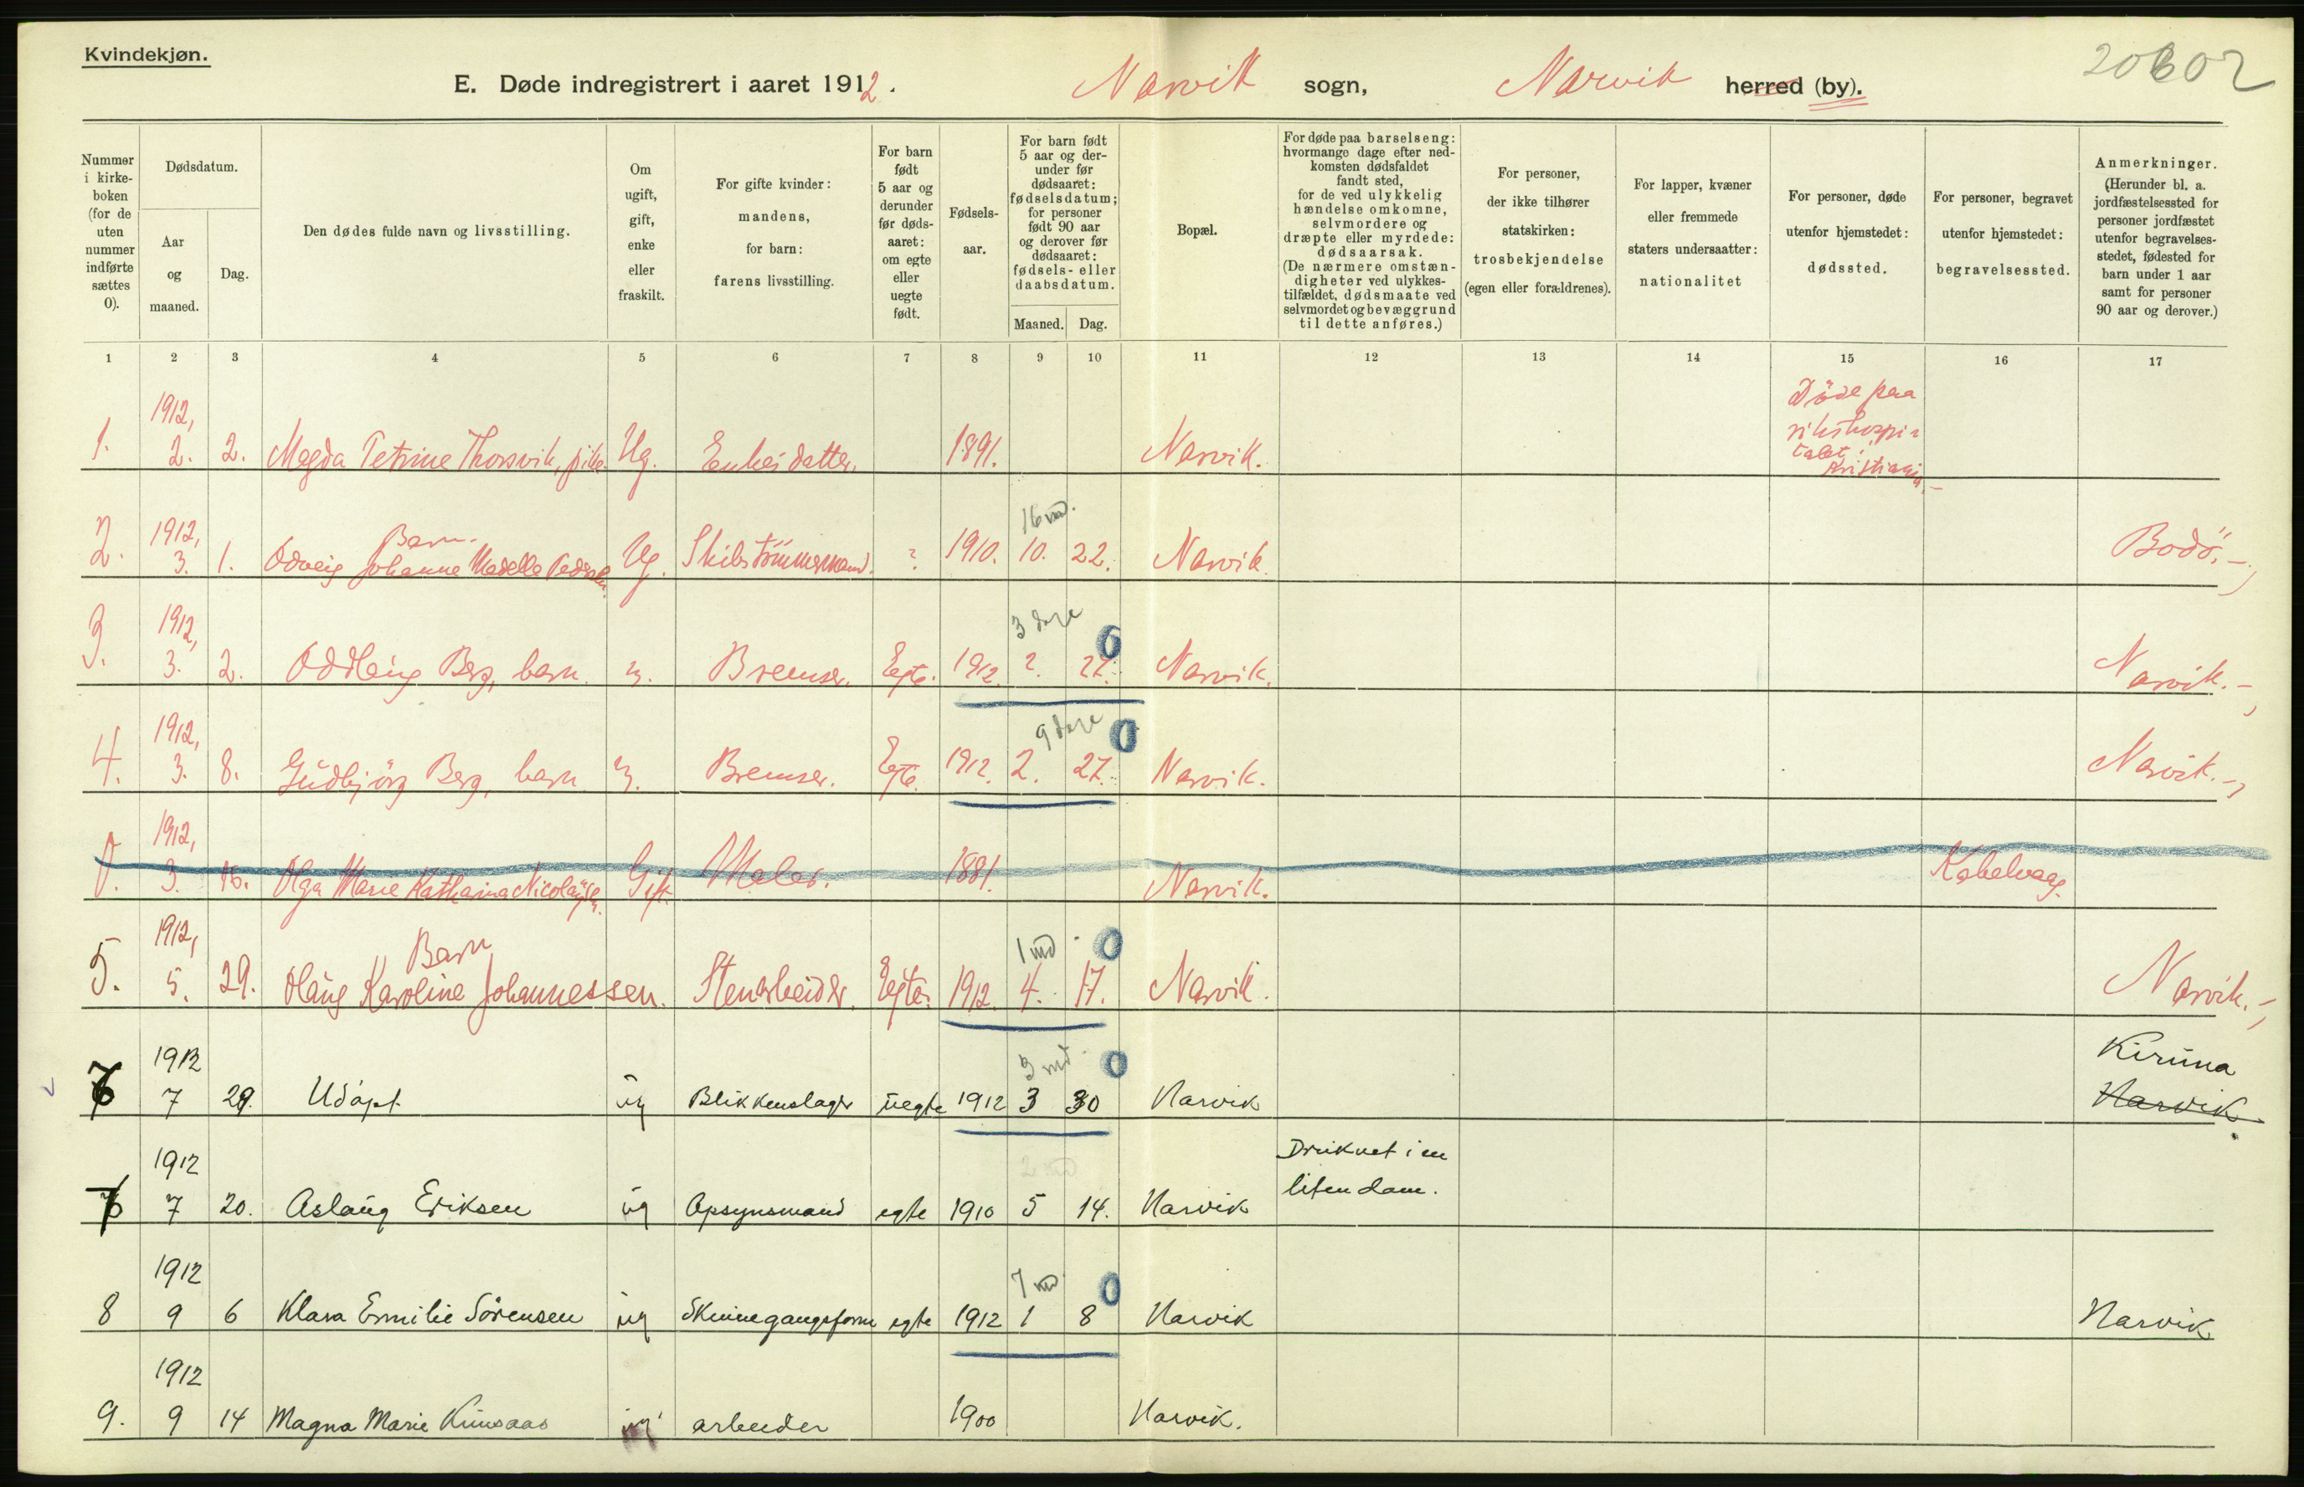 Kvindekjøn.
E. Døde indregistrert i aaret 1912. Narvik sogn, Narvik herred (by).
Nummer i kirkeboken (for de uten nummer indførte sættes 0).
Dødsdatum.
Aar og maaned.
Dag.
Den dødes fulde navn og livsstilling.
Om ugift, gift, enke eller fraskilt.
For gifte kvinder: mandens, for barn: farens livsstilling.
For barn født 5 aar og derunder før dødsaaret: om egte eller uegte født.
Fødselsaar.
For barn født 5 aar og derunder før dødsaaret: fødselsdatum; for personer født 90 aar og derover før dødsaaret: fødsels- eller daabsdatum.
Maaned. Dag.
Bopæl.
For døde paa barselseng: hvormange dage efter nedkomsten dødsfaldet fandt sted, for de ved ulykkelig hændelse omkomne, selvmordere og dræpte eller myrdede: dødsaarsak. (De nærmere omstændigheter ved ulykkestilfældet, dødsmaate ved selvmordet og bevæggrund til dette anføres.)
For personer, der ikke tilhører statskirken: trosbekjendelse (egen eller forældrenes).
For lapper, kvæner eller fremmede staters undersaatter: nationalitet
For personer, døde utenfor hjemstedet: dødssted.
For personer, begravet utenfor hjemstedet: begravelsessted.
Anmerkninger. (Herunder bl. a. jordfæstelsessted for personer jordfæstet utenfor begravelsesstedet, fødested for barn under 1 aar samt for personer 90 aar og derover.)
1 2 3 4 5 6 7 8 9 10 11 12 13 14 15 16 17
1. 1912, 2. 2. Magda Petrine Thorsvik, pike Ug. Enkes datter. 1891. Narvik. Døde paa rikshospitalet, Kristiania,-
2. 1912, 3. 1. Barn. Odveig Johanne Pedersen. Ug. Skibstömmermand. ? 1910. 16 md. 10. 22. Narvik. Bodö,-
3. 1912, 3. 2. Oddlaug Berg, barn. Bremser. Egte. 1912. 3 dage 2. 27. 0 Narvik. Narvik.-
4. 1912, 3. 8. Gudbjörg Berg, barn Bremser. Egte. 1912. 9 dage 2. 27. 0 Narvik. Narvik.-
0. 1912, 3. 16. Olga Marie Katharina Gift. Maler. 1881. Narvik. Kabelvaag.
5. 1912, 5. 29. Barn Olaug Karoline Johannessen. Stenarbeider. Egte. 1912. 1 md 4. 17. 0 Narvik. Narvik.-
6 1912 7 29. Udöpt ug Blikkenslager uegte 1912 3 md. 3 30 0 Narvik Kiruna Narvik
7 1912 7 20. Aslaug Eriksen ug Opsynsmand egte 1910 2 md 5 14. Narvik Druknet i en liten dam.
8 1912 9 6 Klara Emilie Sörensen ug Skinnegangsform egte 1912 7 md 1 8 0 Narvik Narvik
9. 1912 9 14 Magna Marie ug arbeider 1900 Narvik.